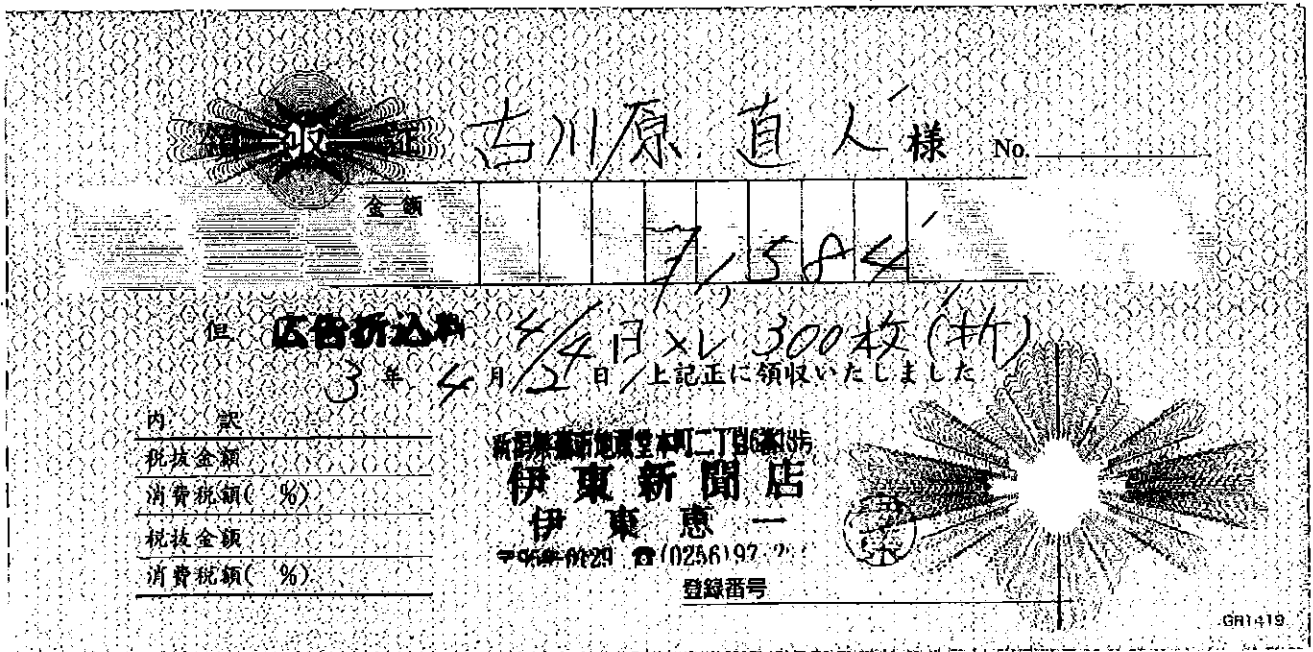 領収証 古川原 直人 様 No.
金額 7,584
但 広告折込料 4/4日メレ 300枚(折)
3年 4月 2日 上記正に領収いたしました
内 訳
税抜金額
消費税額( %)
税抜金額
消費税額( %)
本町二丁目6番13号
伊東新聞店
伊東恵一
〒959-0129 ☎(0256)97-
登録番号
GR1419